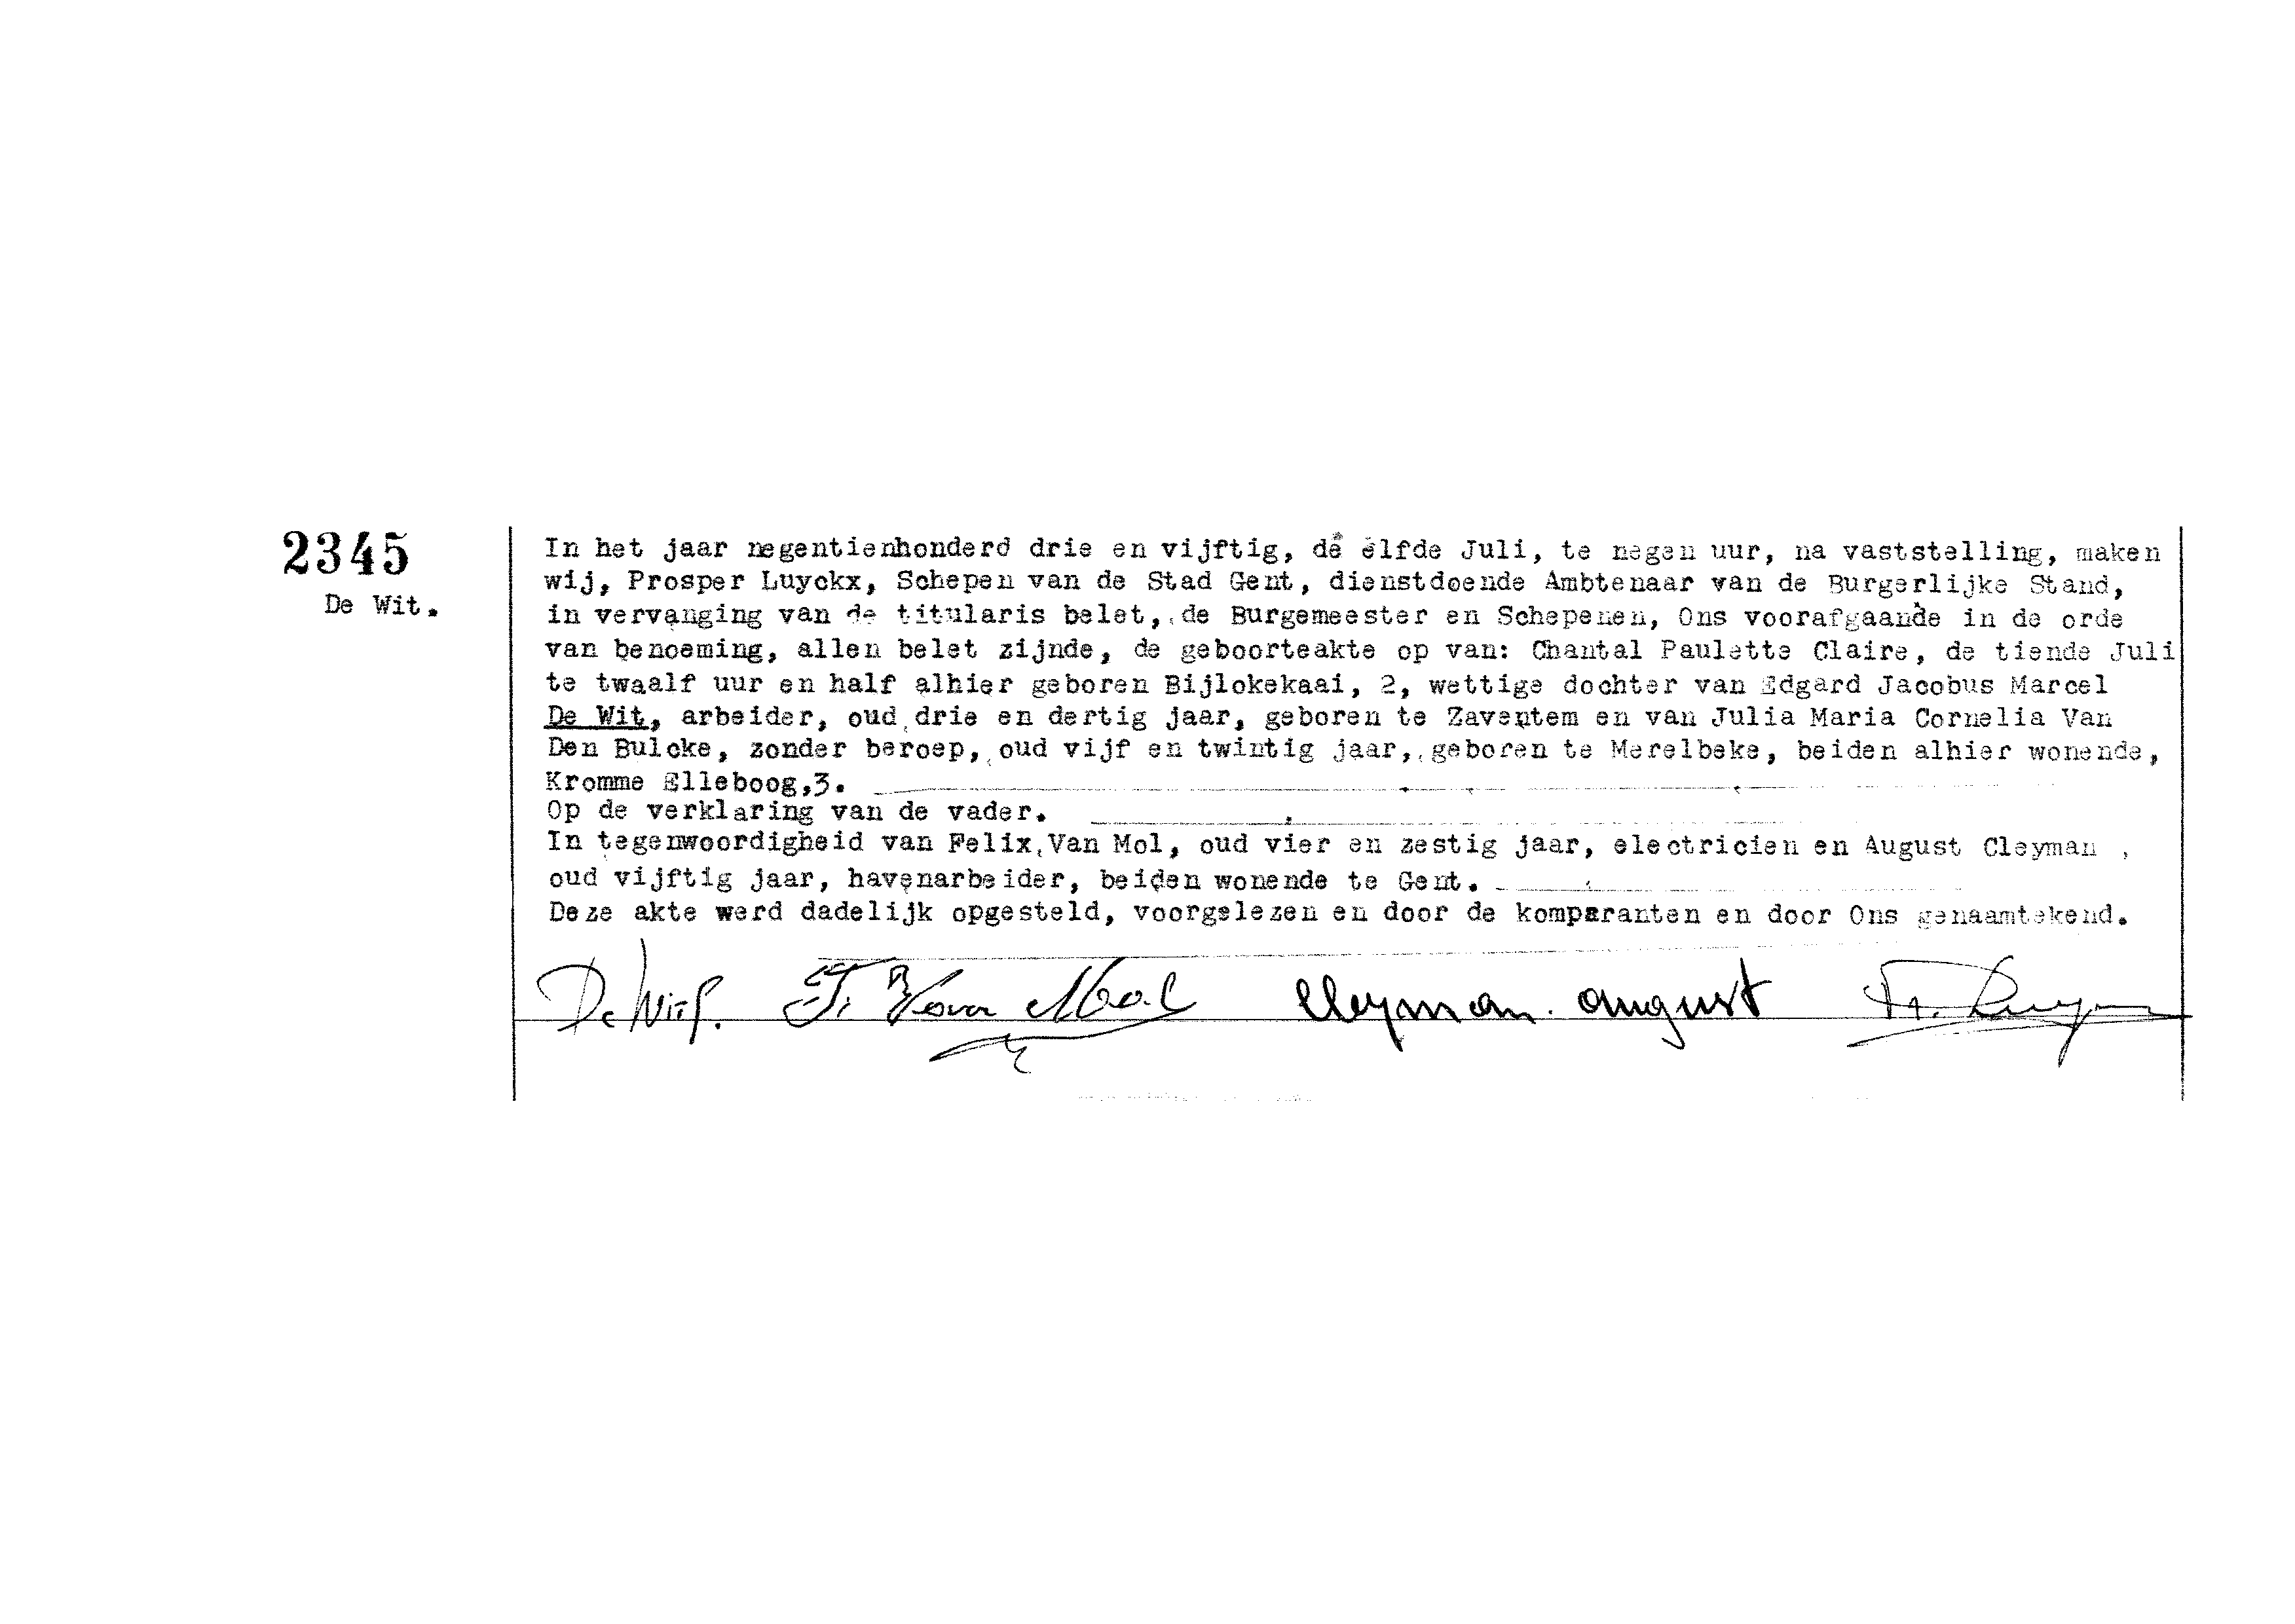 2345
De Wit.
In het jaar negentienhonderd drie en vijftig, de elfde Juli, te negen uur, na vaststelling, maken
wij, Prosper Luyckx, Schepen van de Stad Gent, dienstdoende Ambtenaar van de Burgerlijke Stand,
in vervanging van de titularis belet, de Burgemeester en Schepenen, Ons voorafgaande in de orde
van benoeming, allen belet zijnde, de geboorteakte op van: Chantal Paulette Claire, de tiende Juli
te twaalf uur en half alhier geboren Bijlokekaai, 2, wettige dochter van Edgard Jacobus Marcel
De Wit, arbeider, oud drie en dertig jaar, geboren te Zaventem en van Julia Maria Cornelia Van
Den Bulcke, zonder beroep, oud vijf en twintig jaar, geboren te Merelbeke, beiden alhier wonende,
Kromme Elleboog,3.
Op de verklaring van de vader.
In tegenwoordigheid van Felix Van Mol, oud vier en zestig jaar, electricien en August Cleyman ,
oud vijftig jaar, havenarbeider, beiden wonende te Gent.
Deze akte werd dadelijk opgesteld, voorgelezen en door de komparanten en door Ons genaamtekend.
De Wit. F. Van Mol Cleyman. August